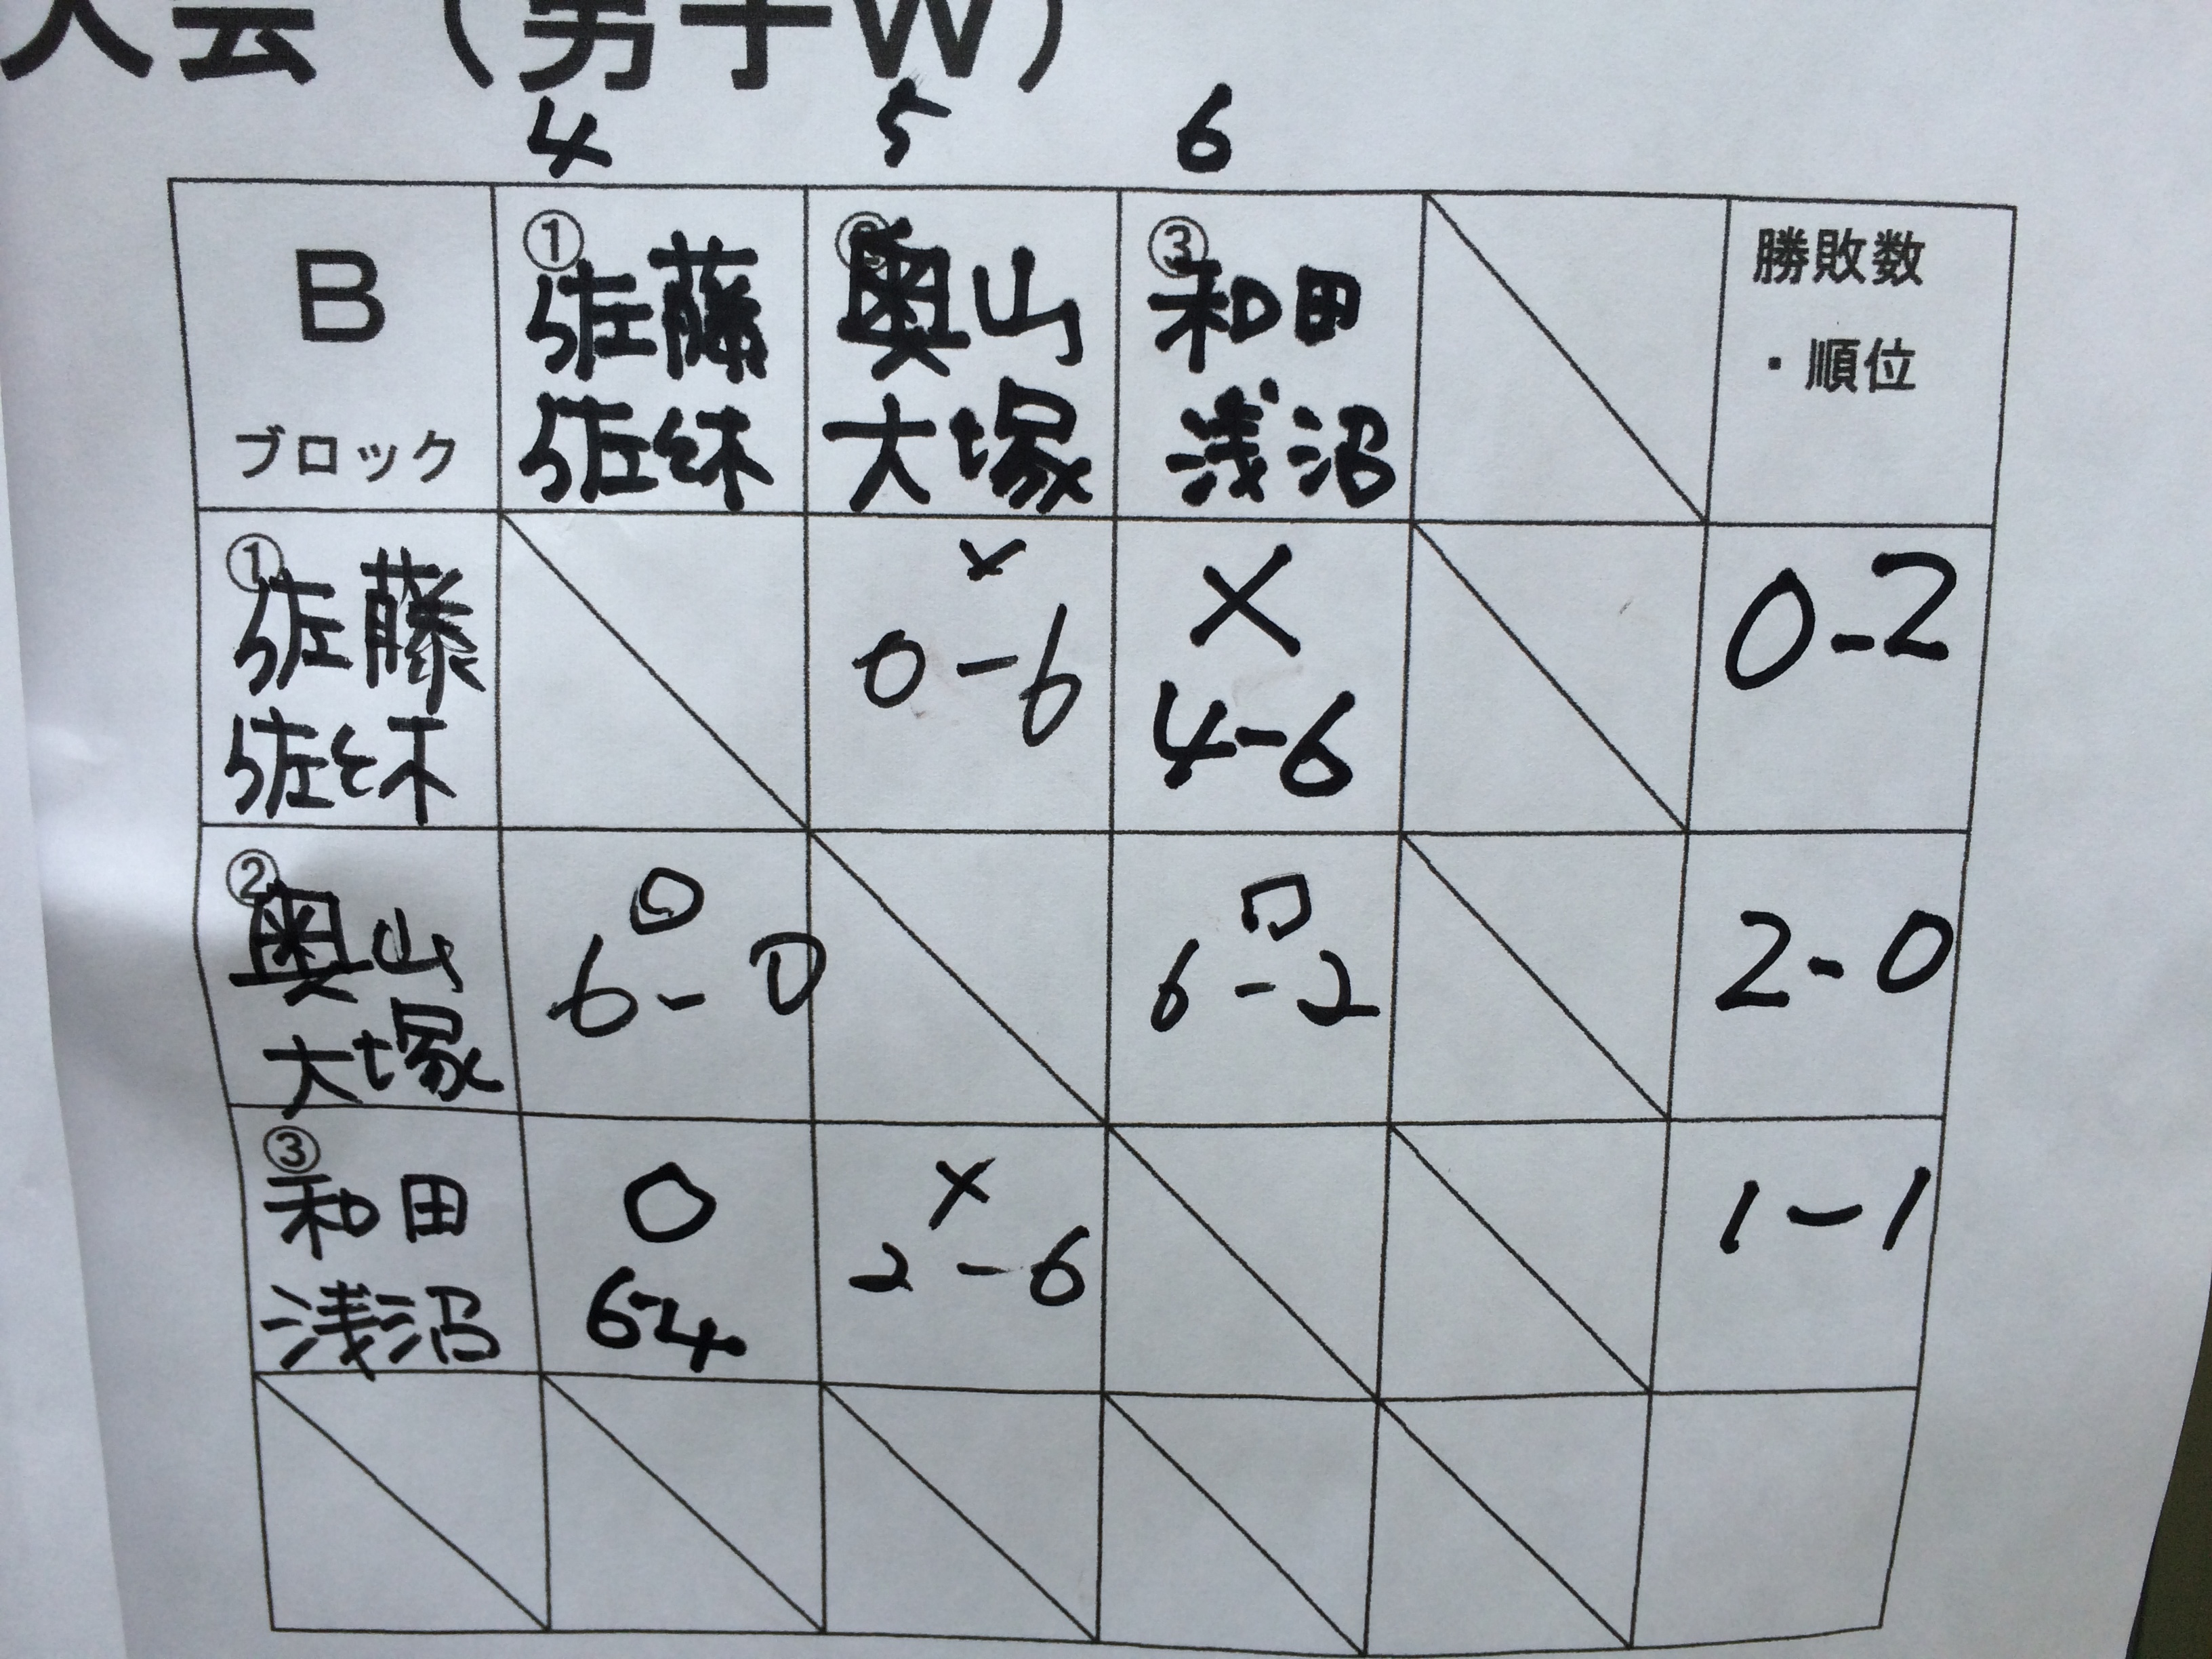 大会（男子W）
4 5 6
B
ブロック
① 佐藤
佐々木
奥山
大塚
③ 和田
浅沼
勝敗数
・順位
① 佐藤
佐々木
×
0-6
×
4-6
0-2
② 奥山
大塚
○
6-0
○
6-2
2-0
③ 和田
浅沼
○
6-4
×
2-6
1-1